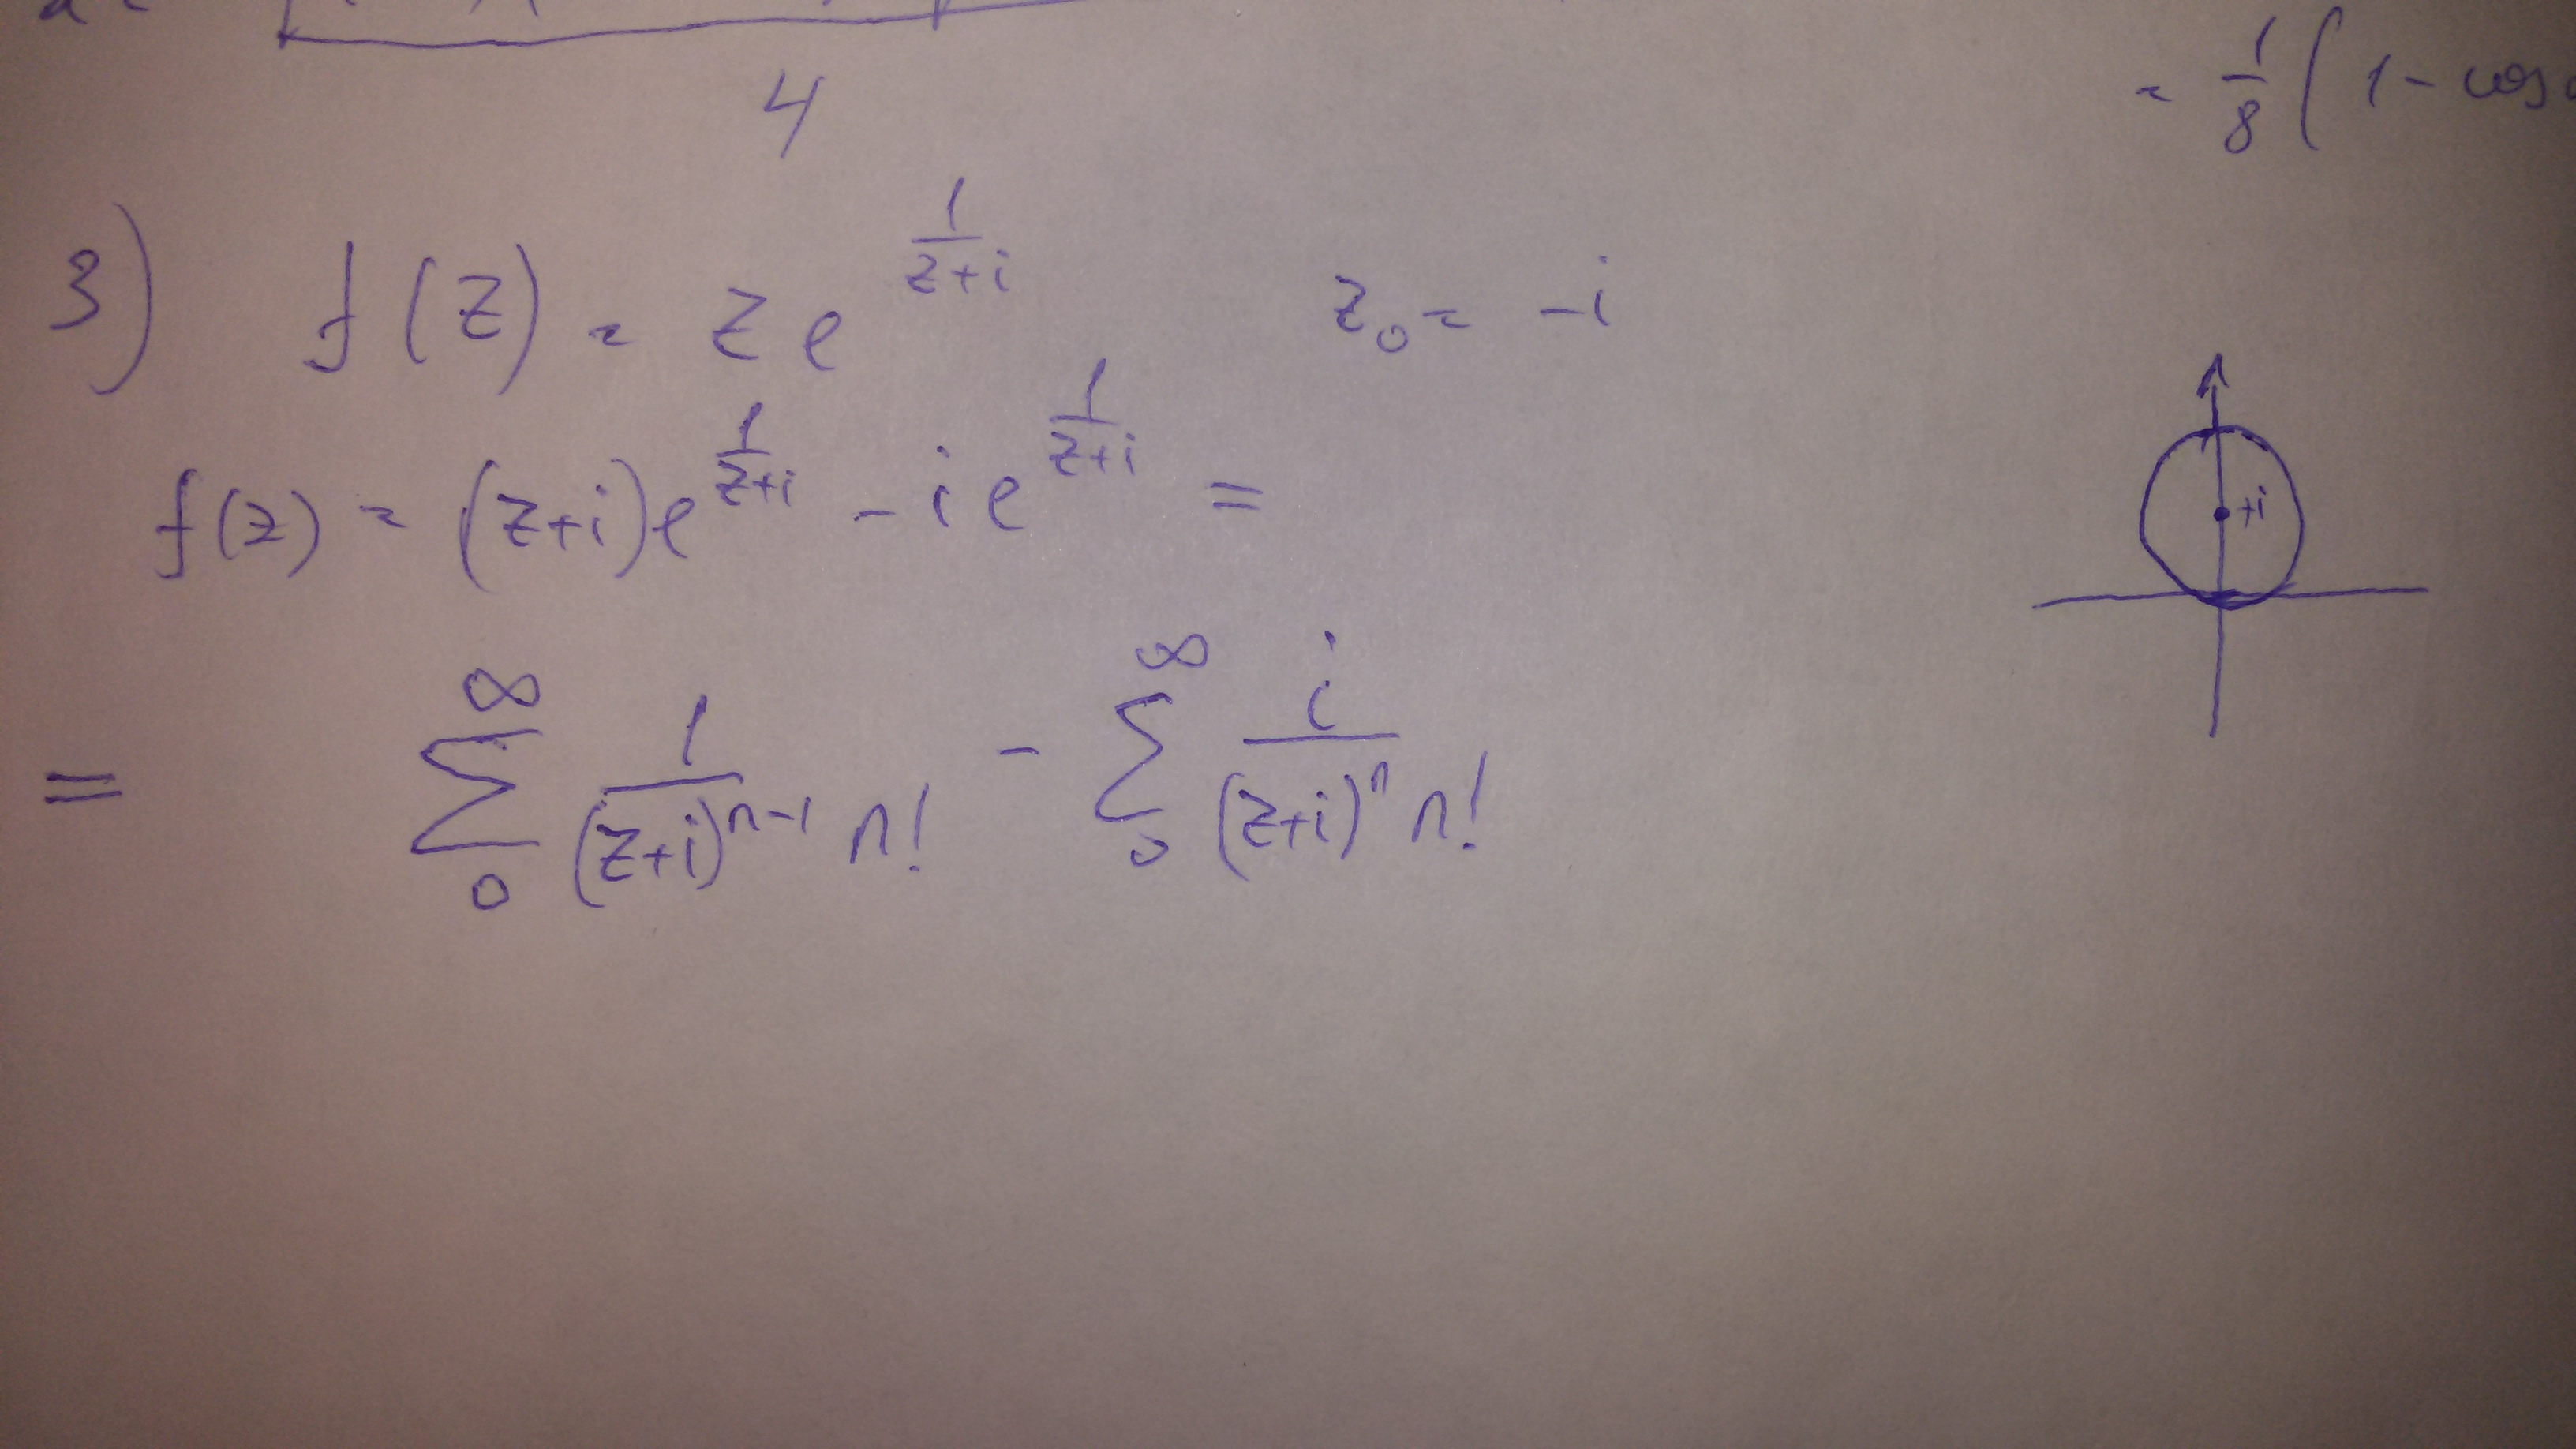 4
= 1/8 ( 1 - cos
3) f(z) = z e^{1/(z+i)} z₀ = -i
f(z) = (z+i) e^{1/(z+i)} - i e^{1/(z+i)} =
+i
= ∑_{0}^{∞} 1/((z+i)^{n-1} n!) - ∑_{0}^{∞} i/((z+i)^{n} n!)